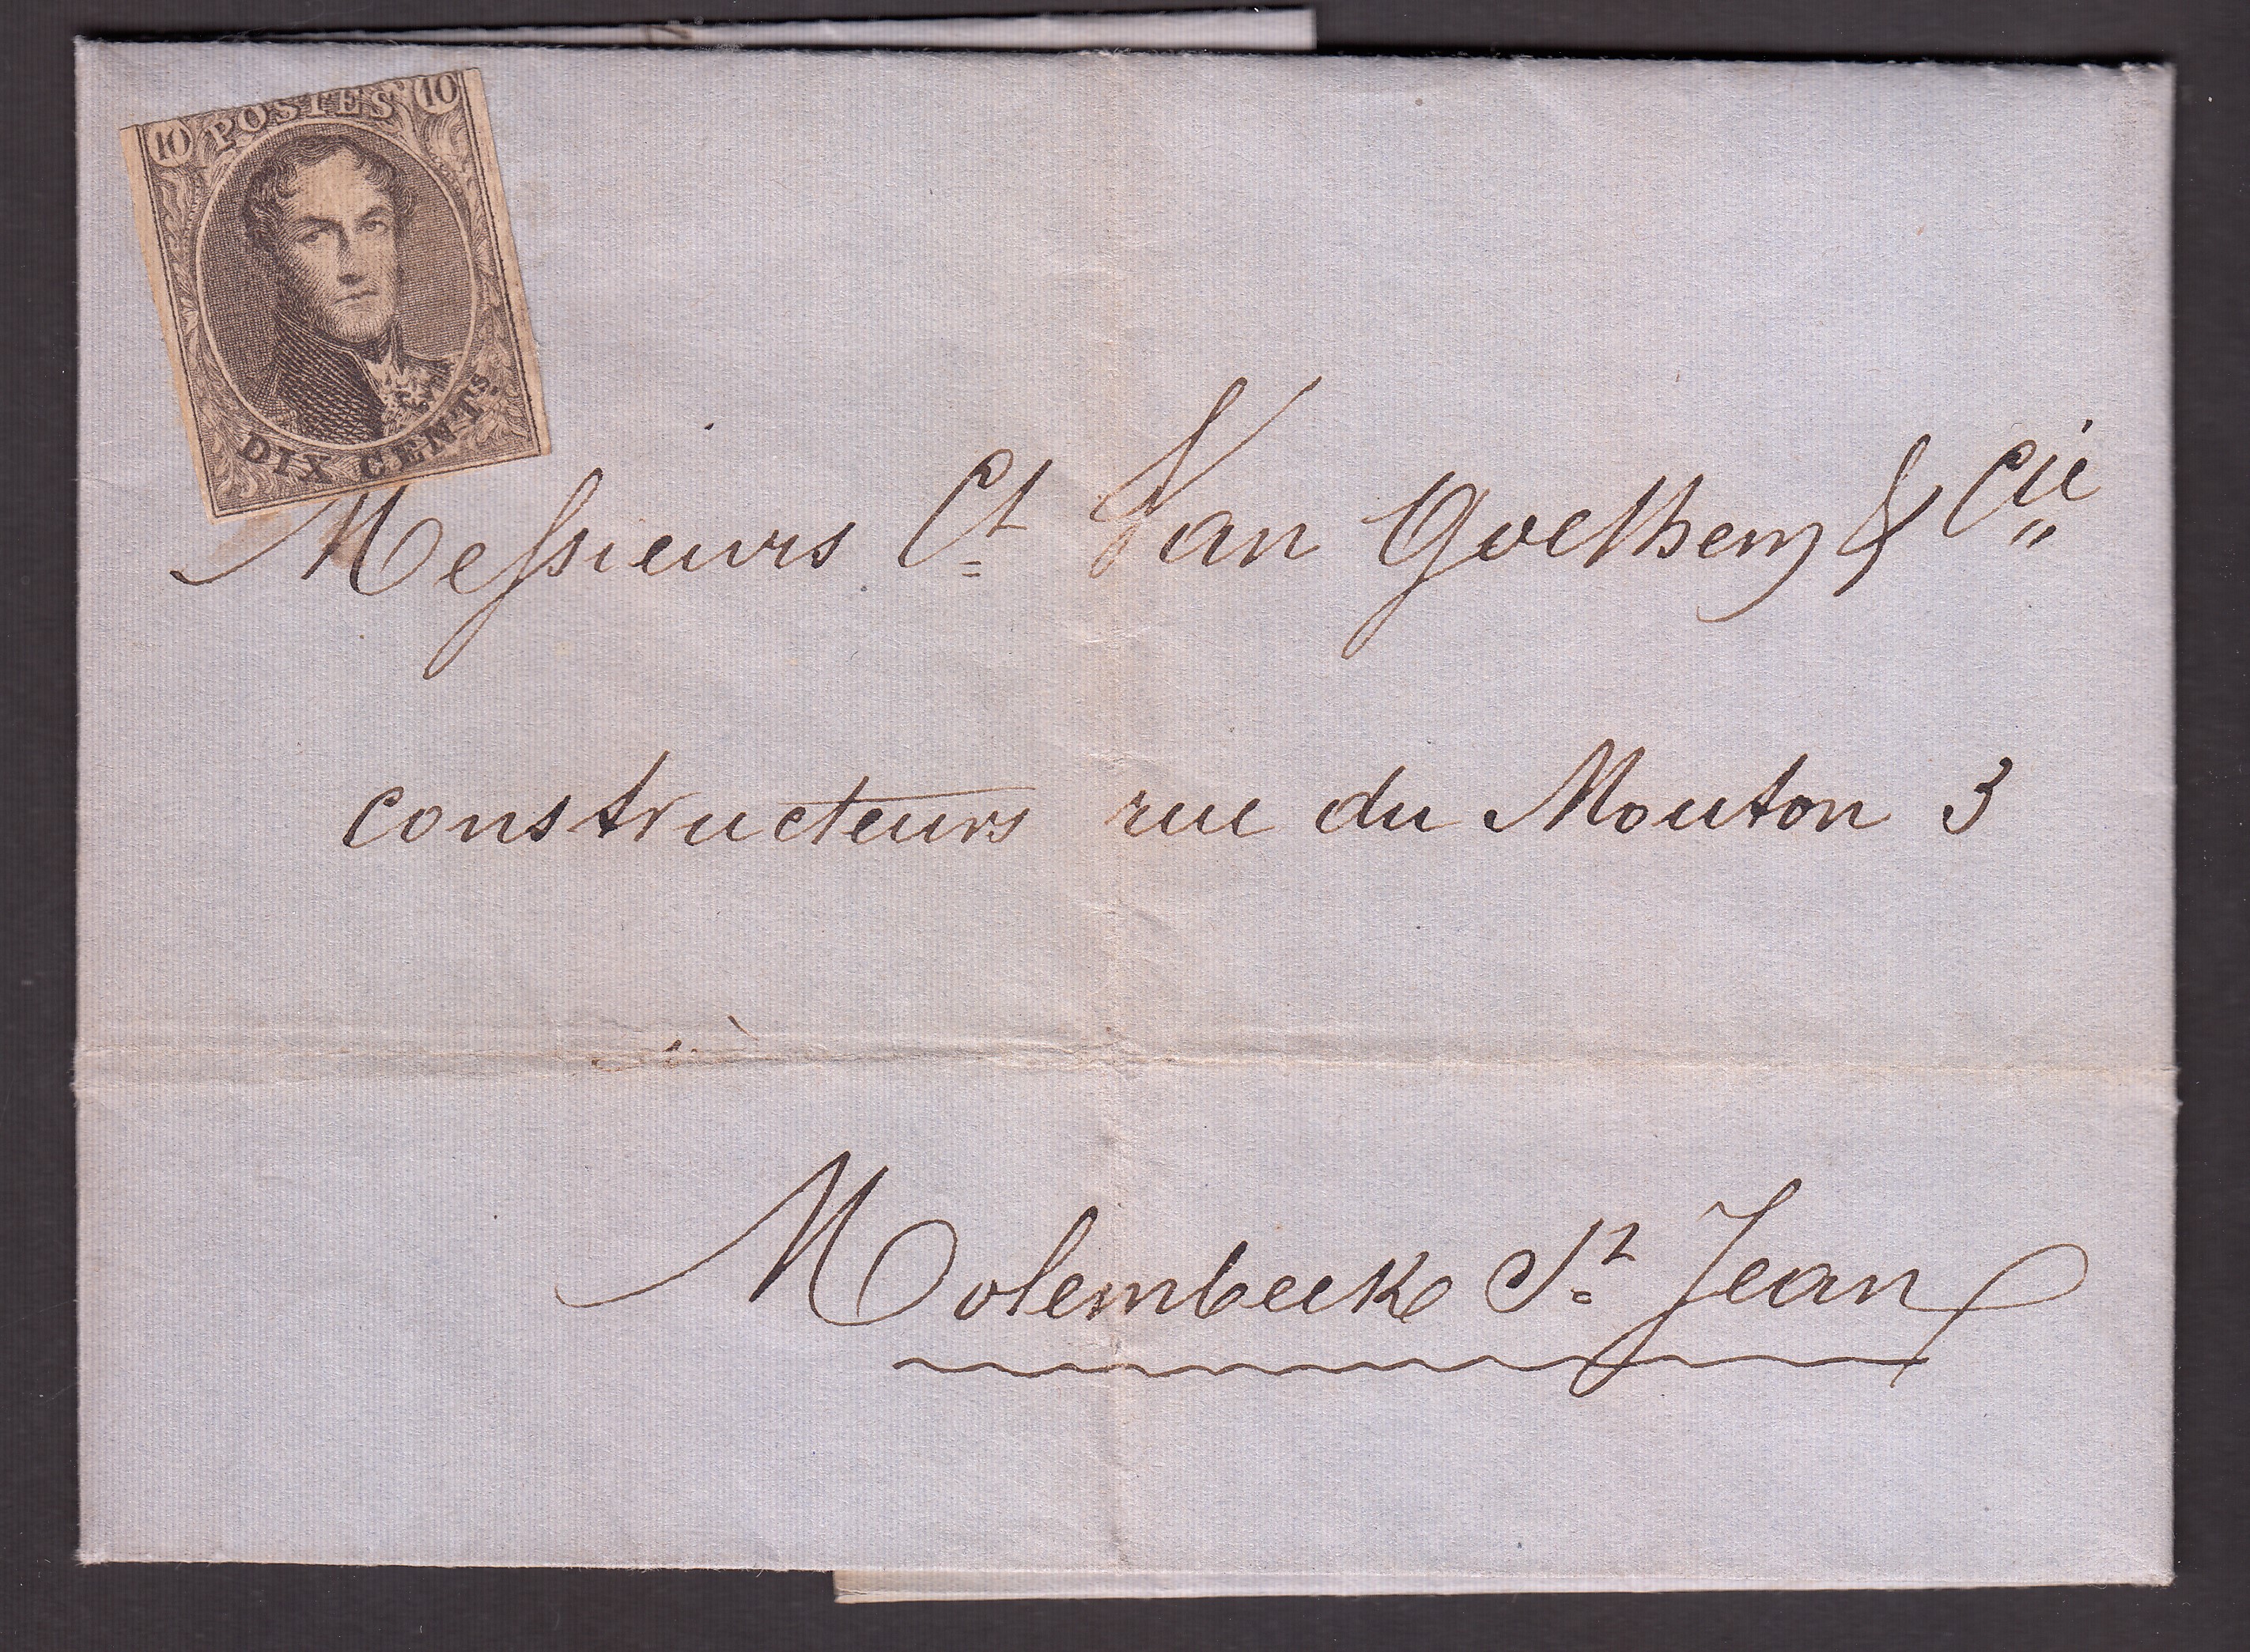 10 POSTES 10
DIX CENTS.
Messieurs Ct Van Goethem & Cie
constructeurs rue du Mouton 3
à
Molembeek St Jean